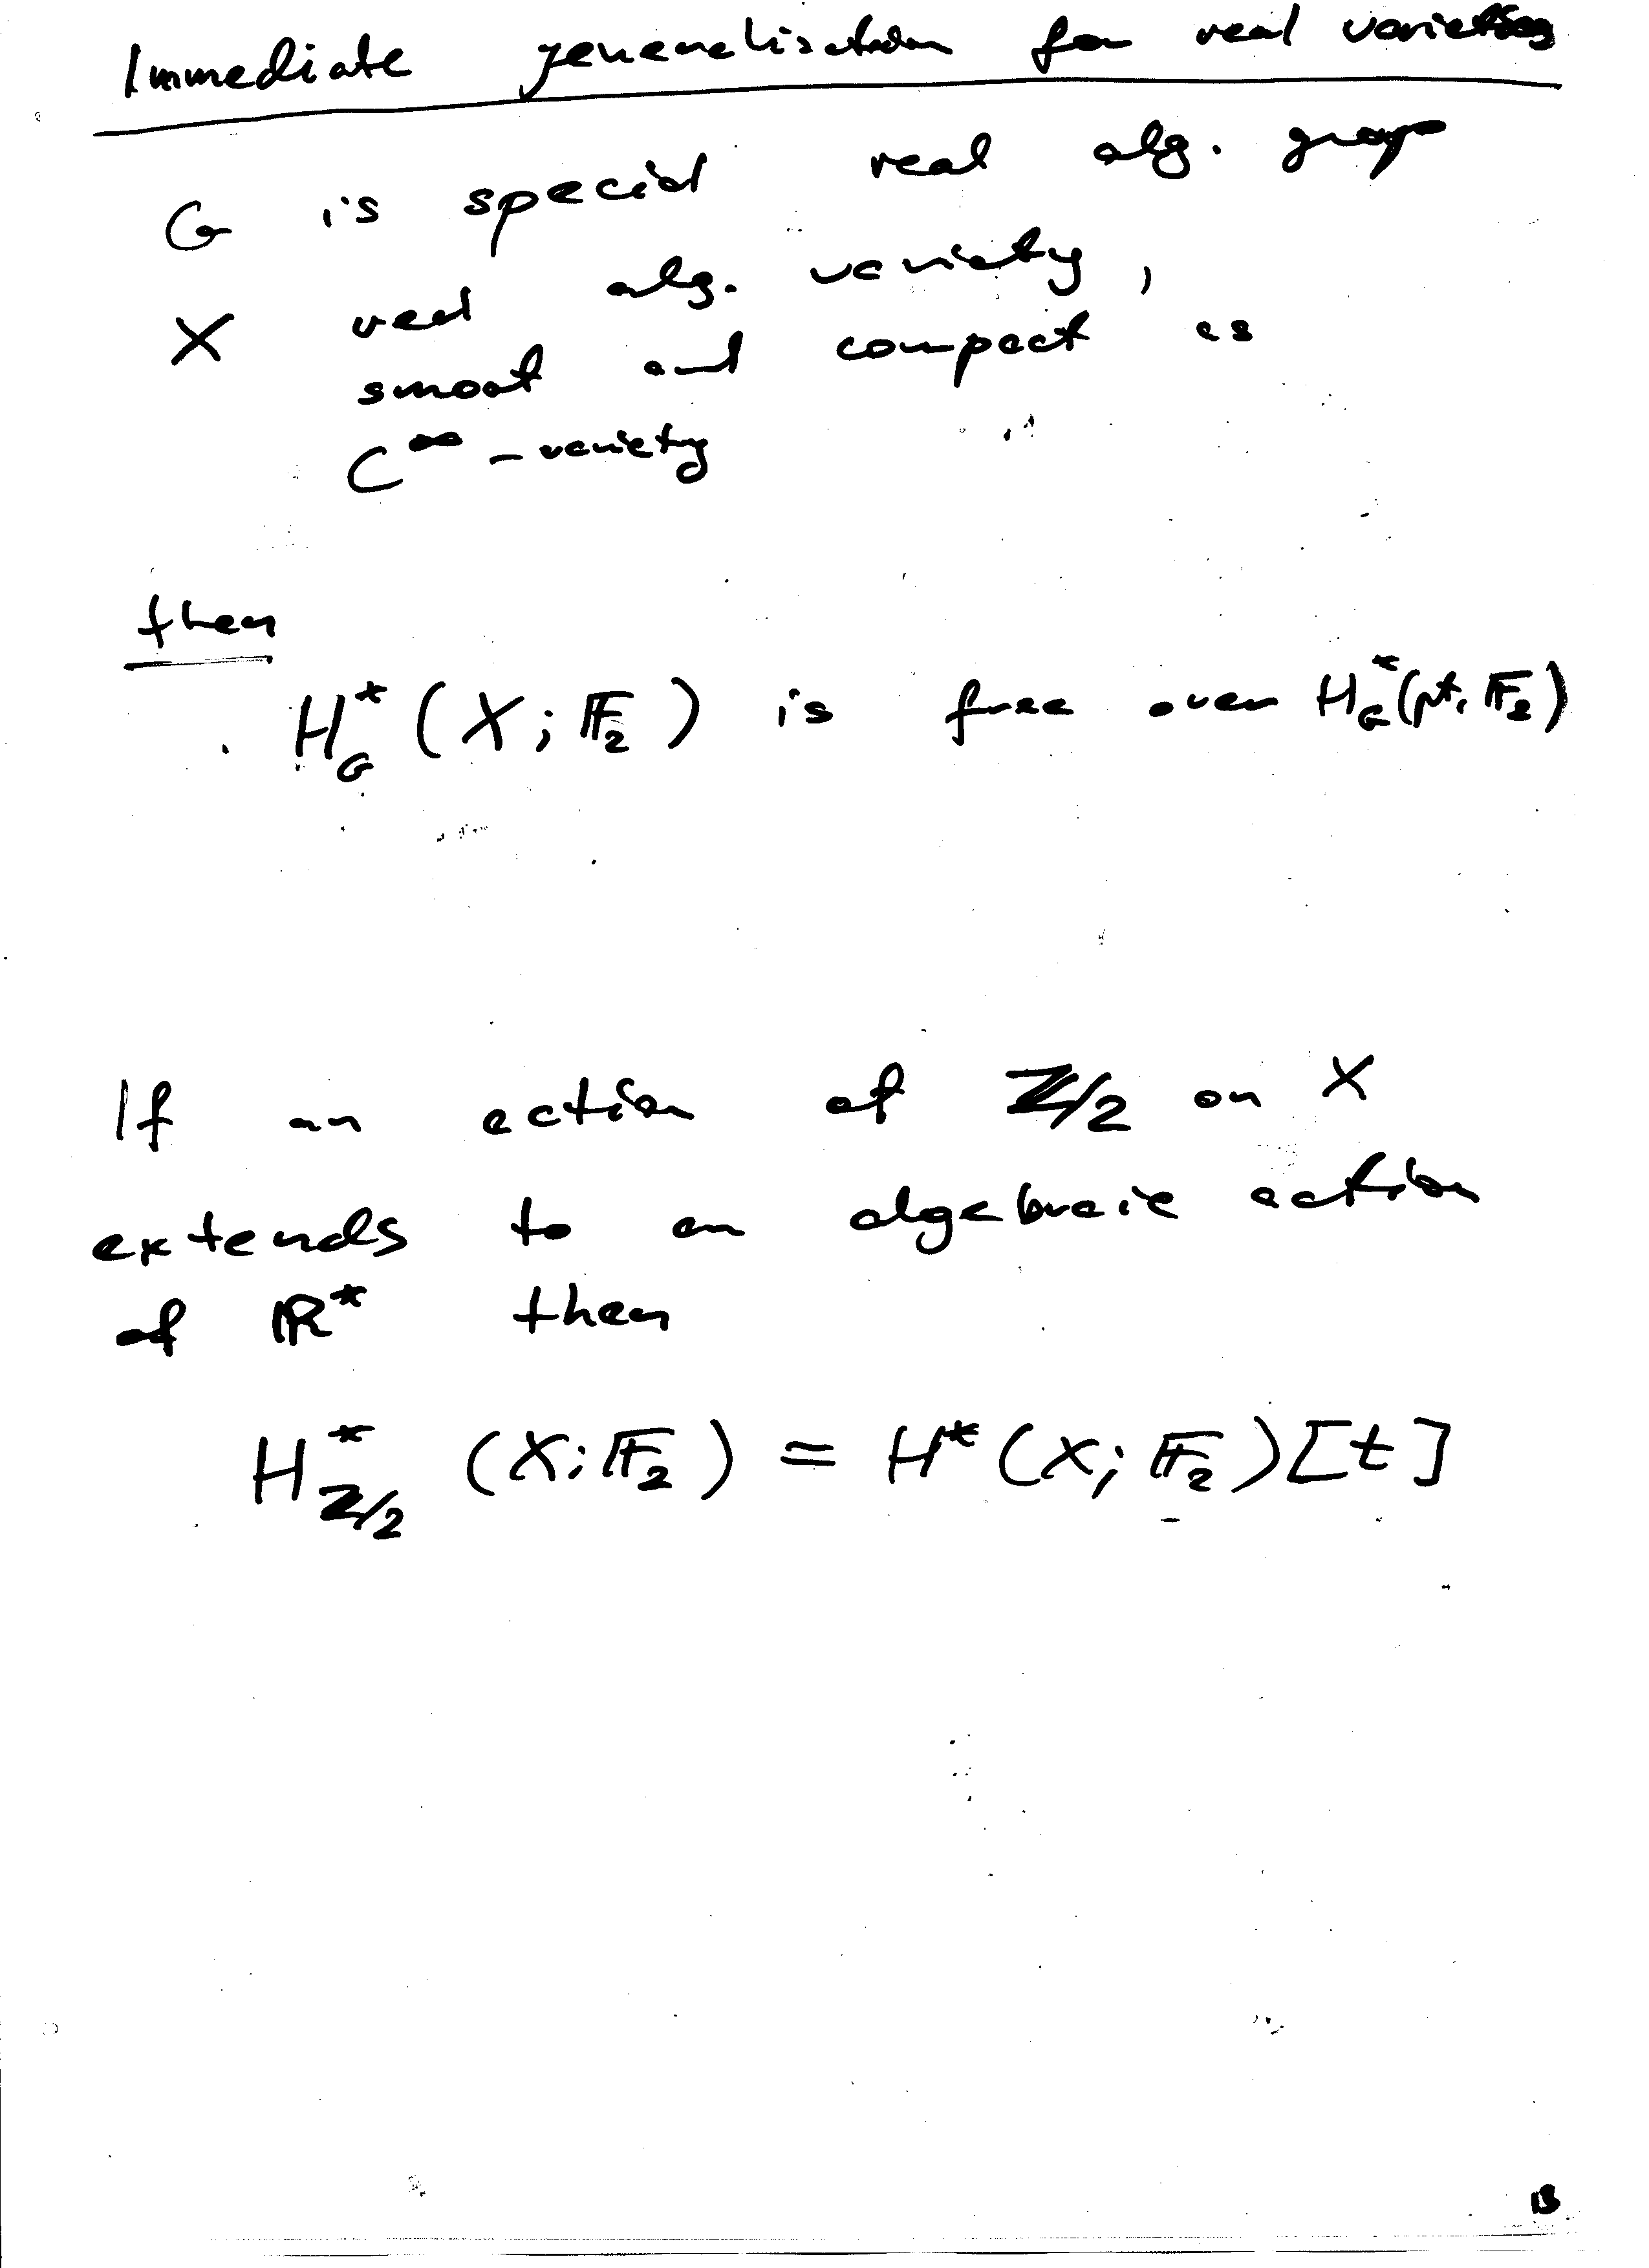 Immediate generalisation for real varieties
G is special real alg. group
X real alg. variety,
smoot and compact as
C^∞ - variety
then
H*_G (X; 𝔽_2) is free over H*_G(pt, 𝔽_2)
If an action of ℤ/2 on X
extends to an algebraic action
of ℝ* then
H*_{ℤ/2} (X; 𝔽_2) = H*(X; 𝔽_2)[t]